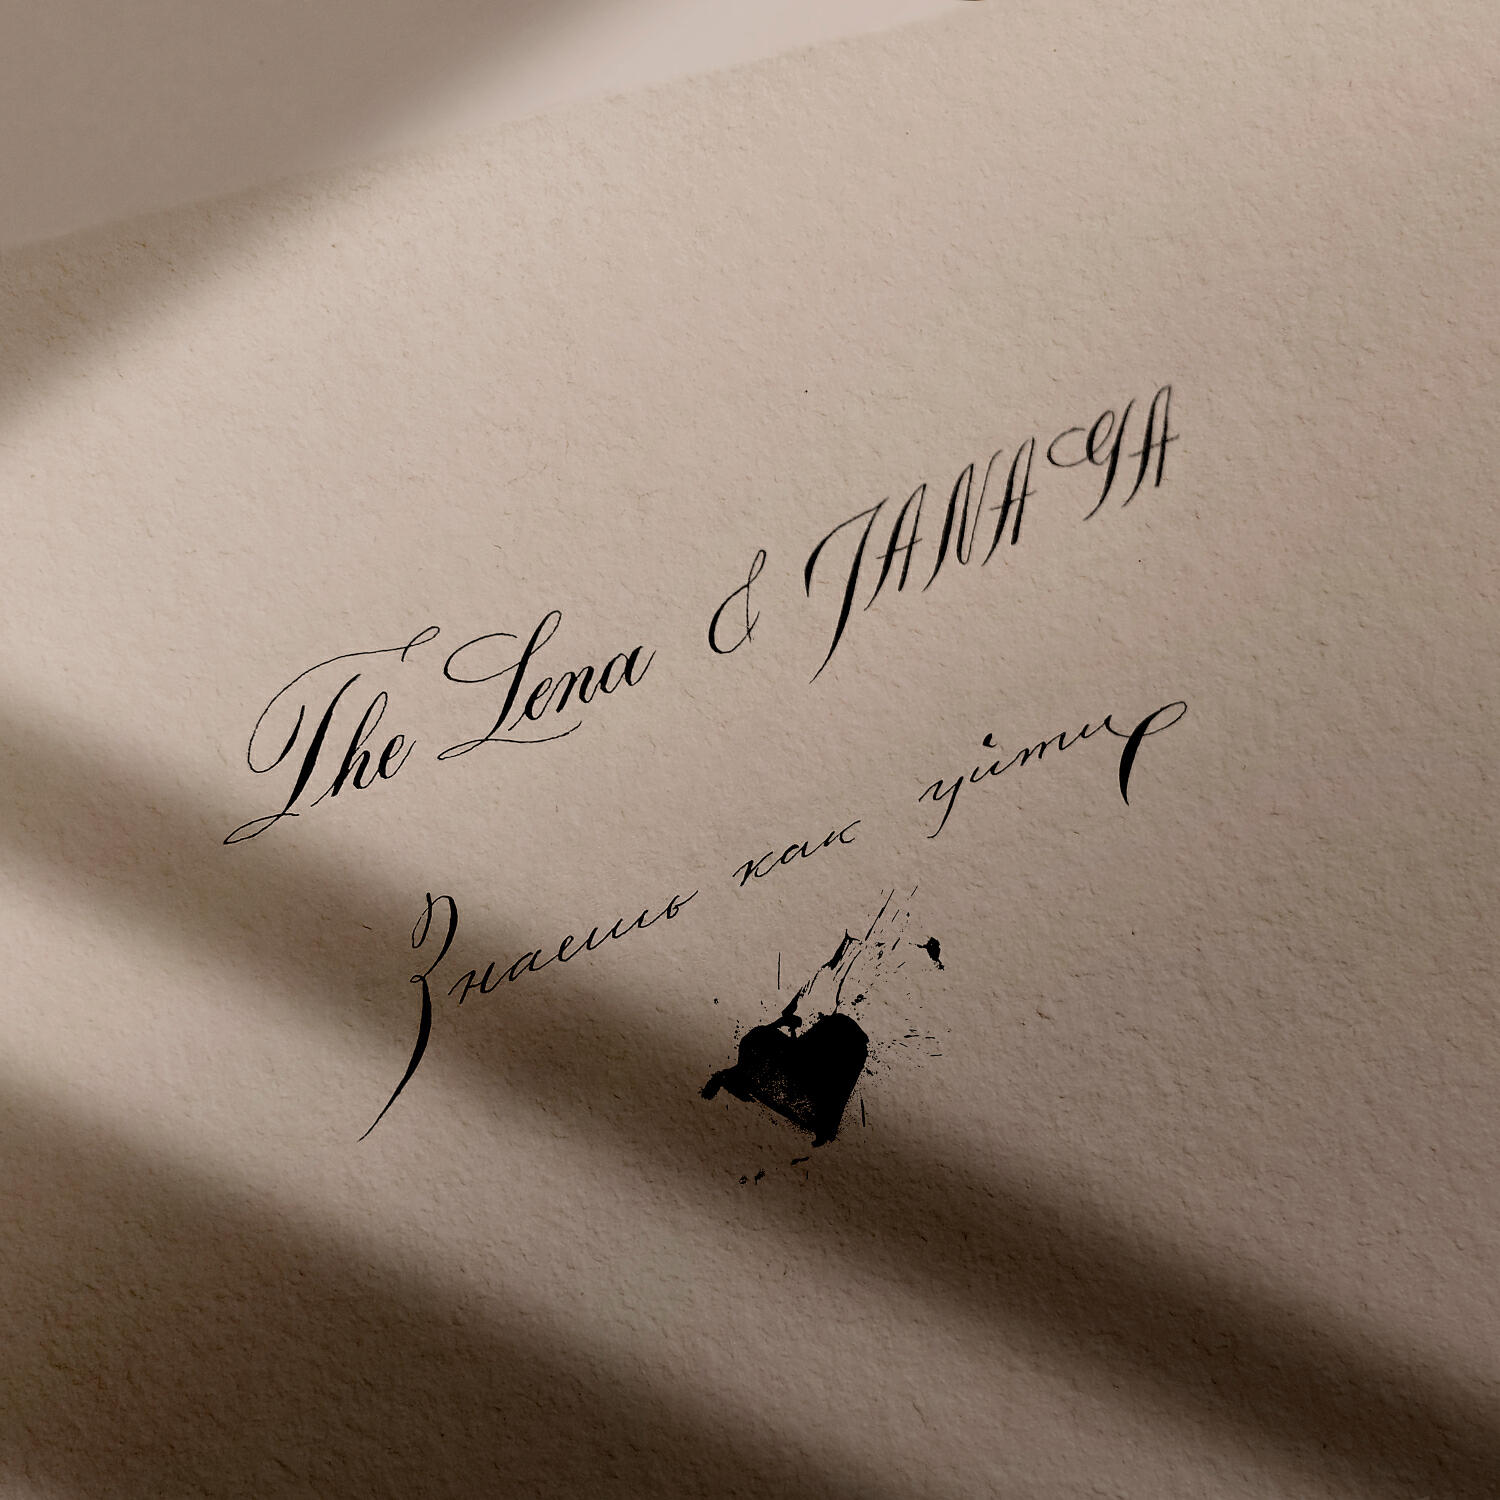 The Lena & TANAYA
Знаешь как уйти